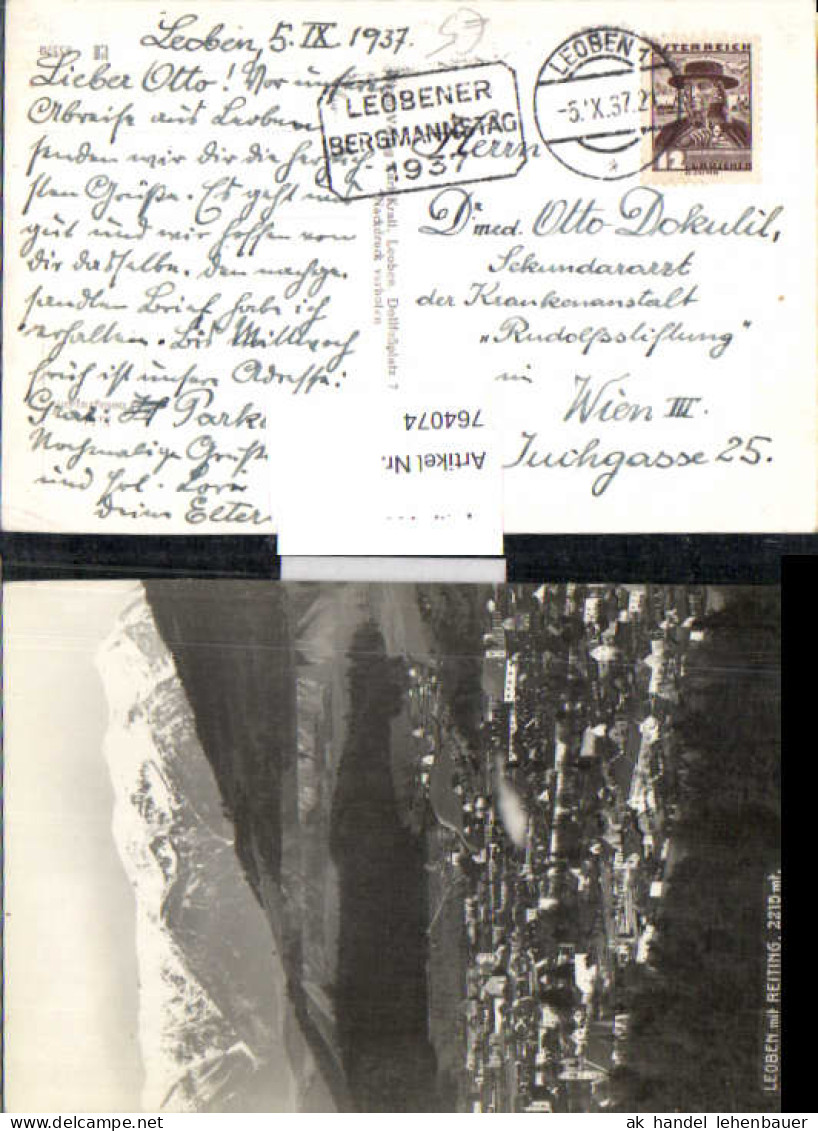 Leoben, 5. IX 1937.
Lieber Otto! Vor unserer
Abreise aus Leoben
senden wir dir die herzlich
sten Grüße. Es geht uns
gut und wir hoffen von
dir dasselbe. Den nachge
sandten Brief habe ich
erhalten. Bis Mittwoch
früh ist unsere Adresse:
Graz: Park
Nochmalige Grüße
und
deine Eltern
LEOBENER
BERGMANNSTAG
1937
LEOBEN 1
-5.IX.37.21
ÖSTERREICH
12
Herrn
Dr. med. Otto Dokulil,
Sekundararzt
der Krankenanstalt
"Rudolfsstiftung"
in
Wien III.
Juchgasse 25.
Krall, Leoben, Dollfußplatz 7
Nachdruck verboten
Artikel Nr.
764074
LEOBEN mit REITING, 2215 mt.
ak handel lehenbauer